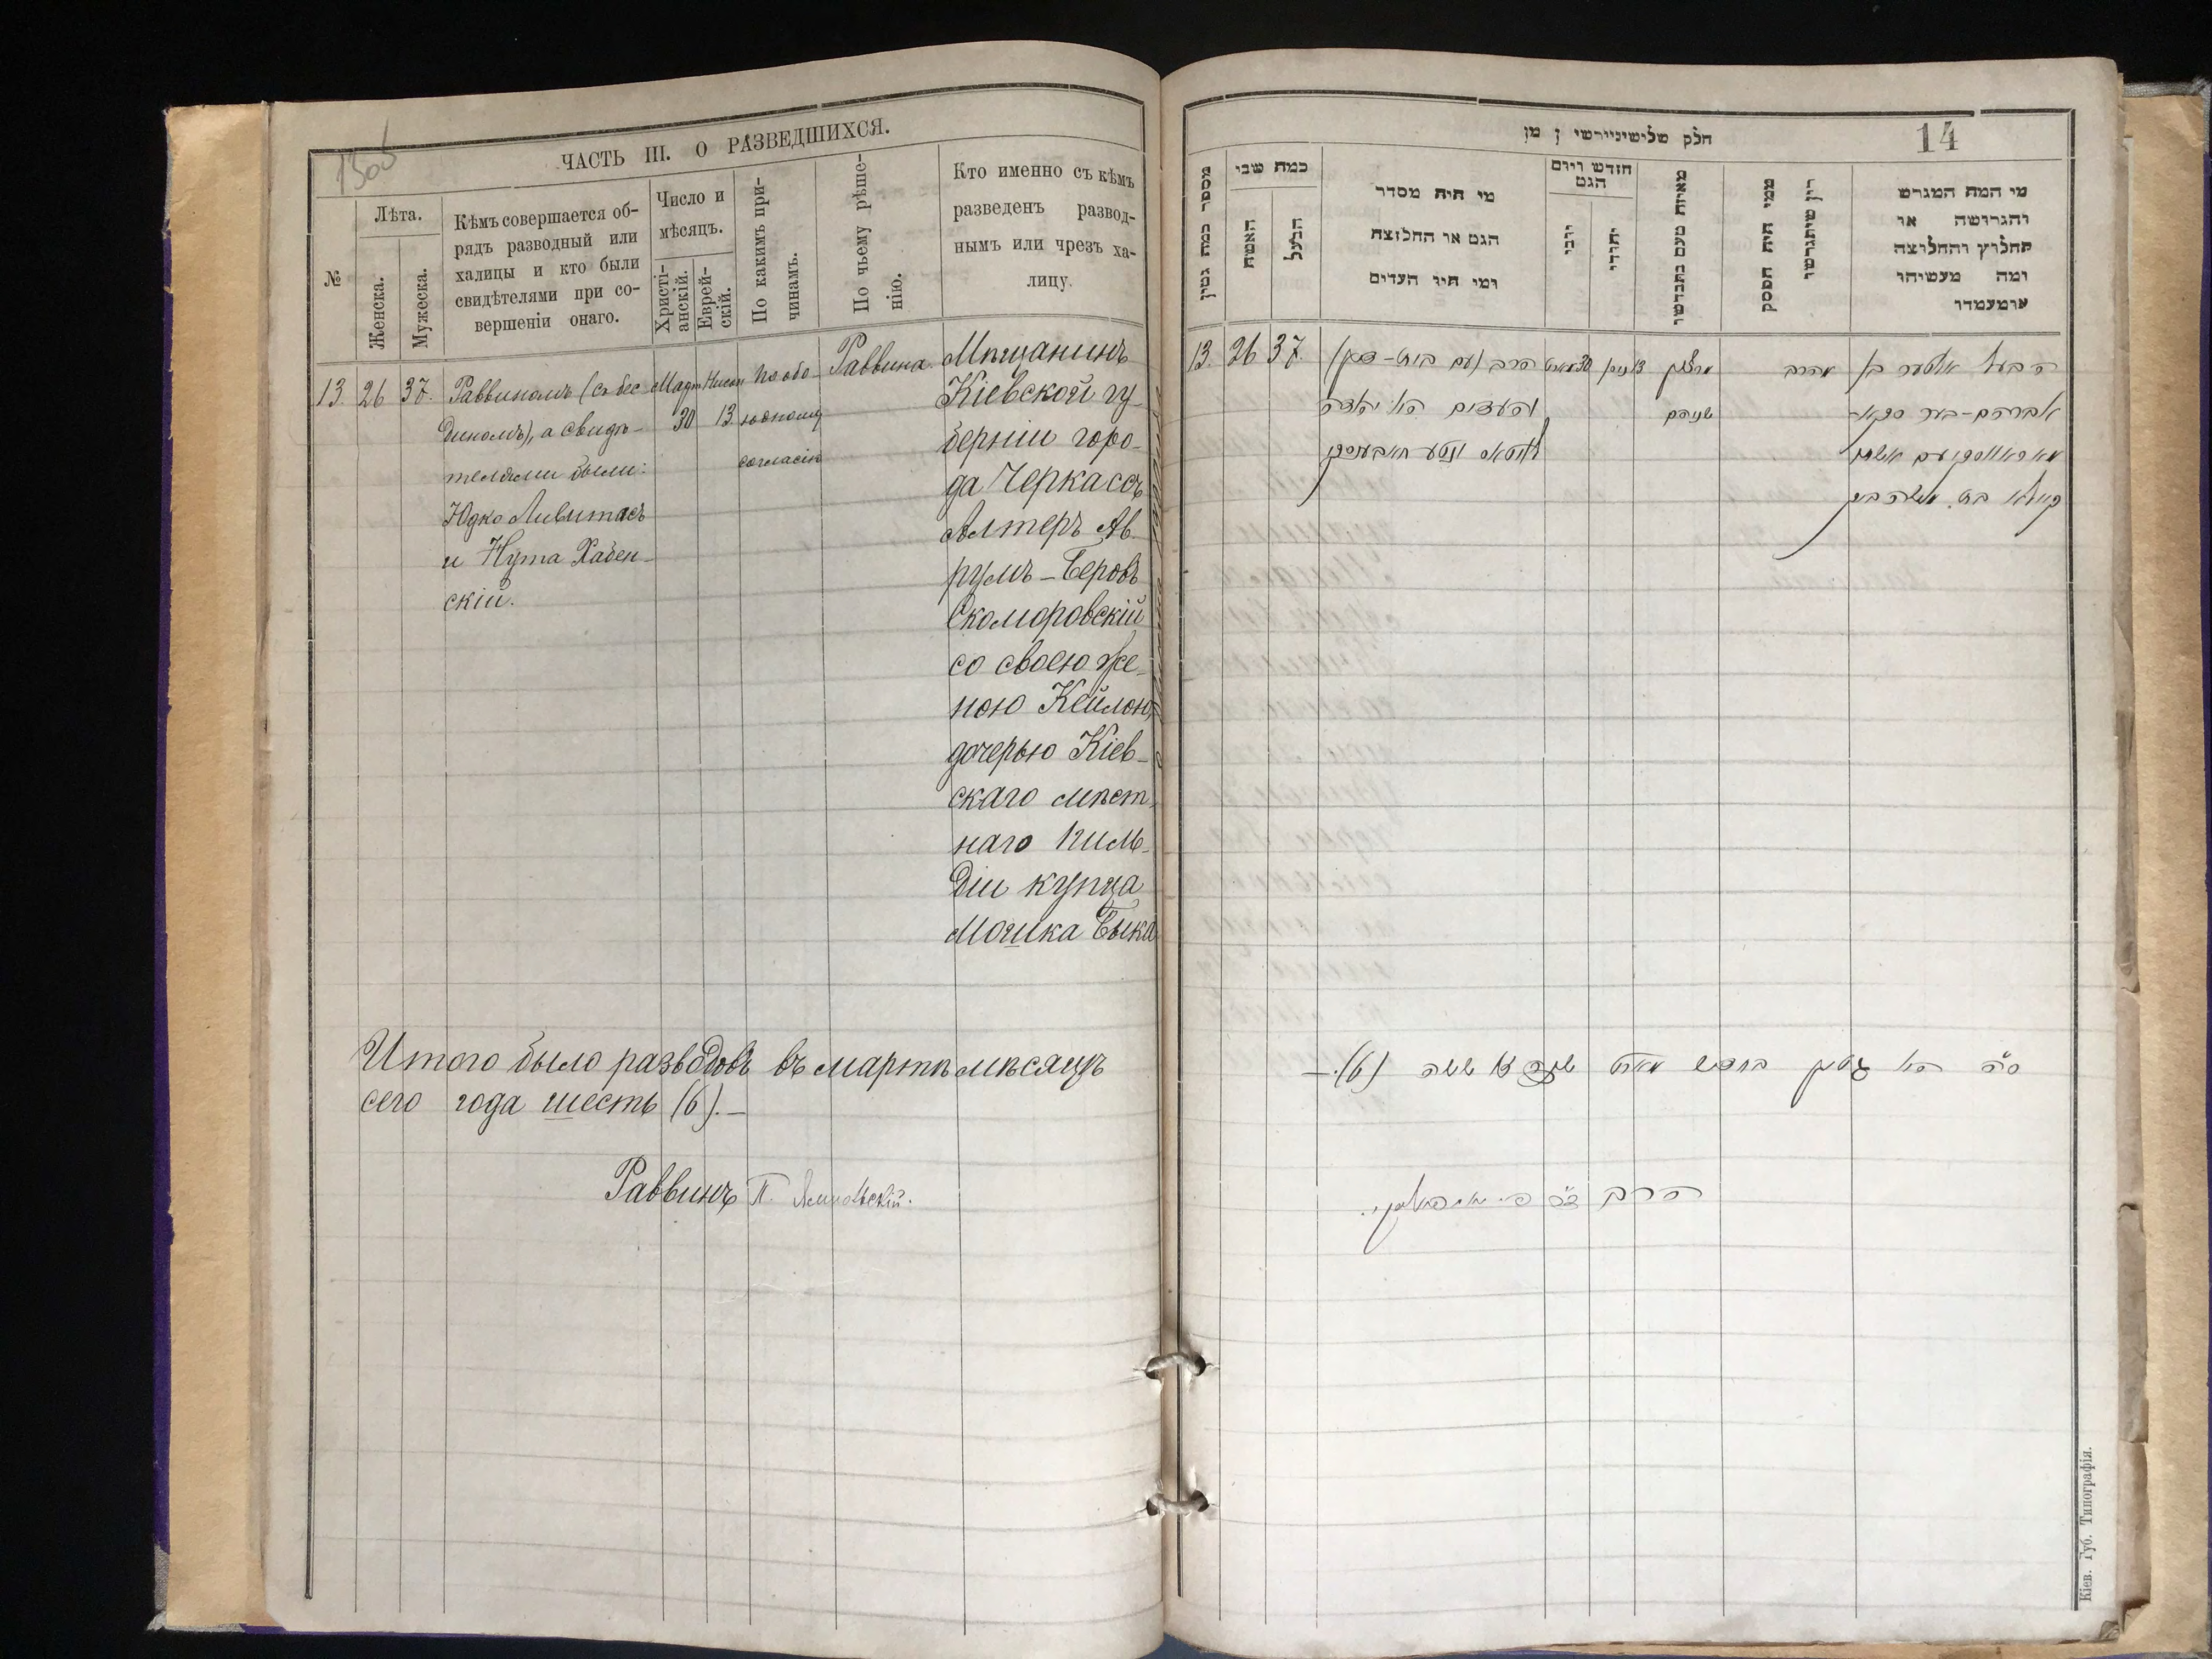 ЧАСТЬ III. О РАЗВЕДШИХСЯ.
№
Лѣта.
Женска.
Мужеска.
Кѣмъ совершается об-
рядъ разводный или
халицы и кто были
свидѣтелями при со-
вершеніи онаго.
Число и
мѣсяцъ.
Христі-
анскій.
Еврей-
скій.
По какимъ при-
чинамъ.
По чьему рѣше-
нію.
Кто именно съ кѣмъ
разведенъ развод-
нымъ или чрезъ ха-
лицу.
13. 26 37.
Раввиномъ (съ бес
Диномъ), а свидѣ-
телями были:
Юдко Ливитасъ
и Нута Хабен-
скій.
Март
30
Нисан
13
По обо-
юдному
согласію
Раввина.
Мѣщанинъ
Кіевской гу-
берніи горо-
да Черкассъ
Алтеръ Ав-
румъ-Беровъ
Скоморовскій
со своею же-
ною Кейлою,
дочерью Кіев-
скаго мѣст-
наго
купца
Мошка Быка
Итого было разводовъ въ мартѣ мѣсяцѣ
сего года шесть (6).—
Раввинъ П.
14
מספר כמה גטין
כמה שני
האשה
הבעל
מי היה מסדר
הגט או החלוצה
ומי היו העדים
חודש ויום
הגט
יהודי
מאיזה טעם נתגרשו
ממי היה הפסק
דין שיתגרשו
מי המה המגרש
והגרושה או
החלוץ והחלוצה
ומה מעשיהו
ומעמדו
13. 26 37.
הרב (עם בית-דין)
והעדים
30
13 ניסן
מרצון
שניהם
מהרב
הבעל אלטער בן
אברהם-בער סקא-
עם אשתו
קיילא בת משה ביק
ס״ה גטין בחדש מארט ששה (6).—
הרב
Кіев. Губ. Типографія.